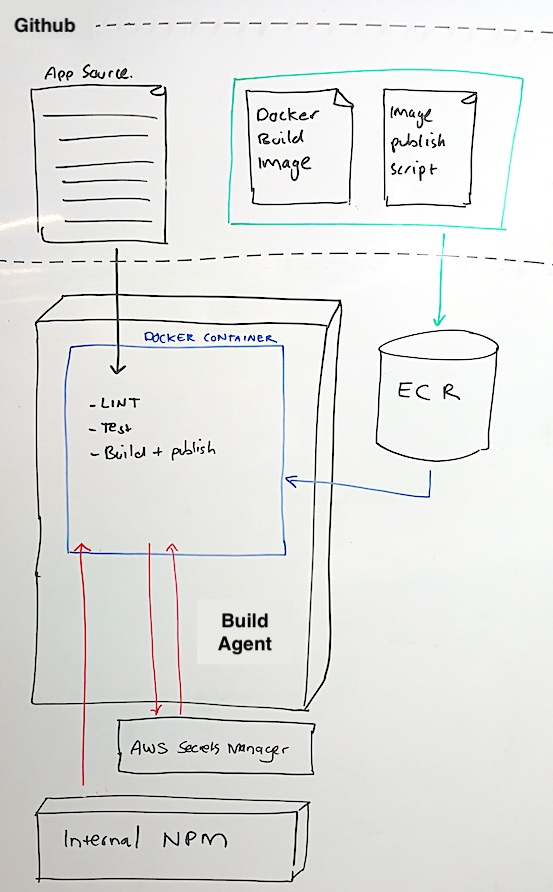 Github
App Source.
Docker
Build
Image
Image
publish
script
DOCKER CONTAINER
- LINT
- Test
- Build + publish
ECR
Build
Agent
AWS Secrets Manager
Internal NPM